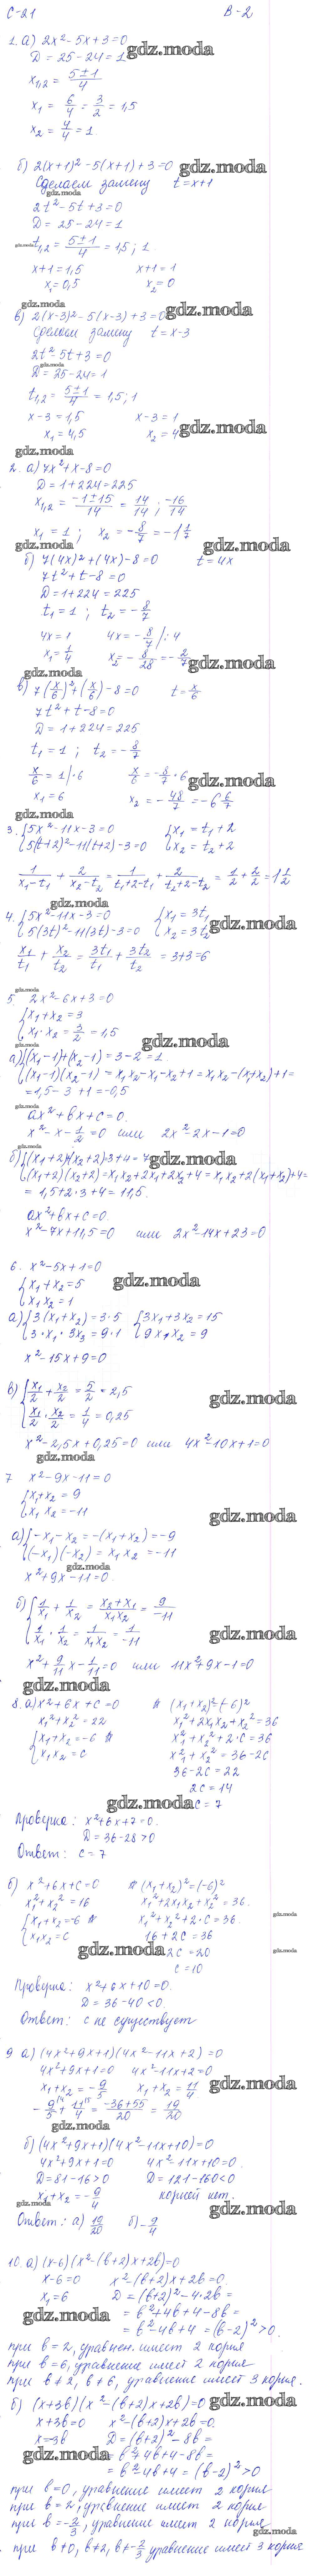 С-21 В-2
1. а) 2x² - 5x + 3 = 0
D = 25 - 24 = 1
x₁,₂ = (5 ± 1)/4
x₁ = 6/4 = 3/2 = 1,5
x₂ = 4/4 = 1
б) 2(x+1)² - 5(x+1) + 3 = 0
Сделаем замену t = x+1
2t² - 5t + 3 = 0
D = 25 - 24 = 1
t₁,₂ = (5 ± 1)/4 = 1,5; 1
x+1 = 1,5 x+1 = 1
x₁ = 0,5 x₂ = 0
в) 2(x-3)² - 5(x-3) + 3 = 0
Сделаем замену t = x-3
2t² - 5t + 3 = 0
D = 25 - 24 = 1
t₁,₂ = (5 ± 1)/4 = 1,5; 1
x - 3 = 1,5 x - 3 = 1
x₁ = 4,5 x₂ = 4
2. а) 7x² + x - 8 = 0
D = 1 + 224 = 225
x₁,₂ = (-1 ± 15)/14 = 14/14; -16/14
x₁ = 1; x₂ = -8/7 = -1 1/7
б) 7(4x)² + (4x) - 8 = 0 t = 4x
7t² + t - 8 = 0
D = 1 + 224 = 225
t₁ = 1; t₂ = -8/7
4x = 1 4x = -8/7 | : 4
x₁ = 1/4 x₂ = -8/28 = -2/7
в) 7(x/6)² + (x/6) - 8 = 0 t = x/6
7t² + t - 8 = 0
D = 1 + 224 = 225
t₁ = 1; t₂ = -8/7
x/6 = 1 | · 6 x/6 = -8/7 · 6
x₁ = 6 x₂ = -48/7 = -6 6/7
3. { 5x² - 11x - 3 = 0 { x₁ = t₁ + 2
5(t+2)² - 11(t+2) - 3 = 0 x₂ = t₂ + 2
1/(x₁-t₁) + 2/(x₂-t₂) = 1/(t₁+2-t₁) + 2/(t₂+2-t₂) = 1/2 + 2/2 = 1 1/2
4. { 5x² - 11x - 3 = 0 { x₁ = 3t₁
5(3t)² - 11(3t) - 3 = 0 x₂ = 3t₂
x₁/t₁ + x₂/t₂ = 3t₁/t₁ + 3t₂/t₂ = 3+3 = 6
5 2x² - 6x + 3 = 0
{ x₁ + x₂ = 3
x₁ · x₂ = 3/2 = 1,5
а) { (x₁-1) + (x₂-1) = 3 - 2 = 1
(x₁-1)(x₂-1) = x₁x₂ - x₁ - x₂ + 1 = x₁x₂ - (x₁+x₂) + 1 =
= 1,5 - 3 + 1 = -0,5
ax² + bx + c = 0.
x² - x - 1/2 = 0 или 2x² - 2x - 1 = 0
б) { (x₁+2)+(x₂+2) = 3+4 = 7
(x₁+2)(x₂+2) = x₁x₂ + 2x₁ + 2x₂ + 4 = x₁x₂ + 2(x₁+x₂) + 4 =
= 1,5 + 2·3 + 4 = 11,5.
ax² + bx + c = 0.
x² - 7x + 11,5 = 0 или 2x² - 14x + 23 = 0
6. x² - 5x + 1 = 0
{ x₁ + x₂ = 5
x₁x₂ = 1
а) { 3(x₁+x₂) = 3·5 { 3x₁ + 3x₂ = 15
3·x₁·3x₂ = 9·1 9x₁x₂ = 9
x² - 15x + 9 = 0
в) { x₁/2 + x₂/2 = 5/2 = 2,5
x₁/2 · x₂/2 = 1/4 = 0,25
x² - 2,5x + 0,25 = 0 или 4x² - 10x + 1 = 0
7 x² - 9x - 11 = 0
{ x₁ + x₂ = 9
x₁x₂ = -11
а) { -x₁ - x₂ = -(x₁+x₂) = -9
(-x₁)(-x₂) = x₁x₂ = -11
x² + 9x - 11 = 0.
б) { 1/x₁ + 1/x₂ = (x₂+x₁)/(x₁x₂) = 9/-11
1/x₁ · 1/x₂ = 1/(x₁x₂) = 1/-11
x² + 9/11 x - 1/11 = 0 или 11x² + 9x - 1 = 0
8. а) x² + 6x + c = 0 (x₁+x₂)² = (-6)²
x₁² + x₂² = 22 x₁² + 2x₁x₂ + x₂² = 36
{ x₁ + x₂ = -6 x₁² + x₂² + 2·c = 36
x₁x₂ = c x₁² + x₂² = 36 - 2c
36 - 2c = 22
2c = 14
c = 7
Проверка: x² + 6x + 7 = 0.
D = 36 - 28 > 0
Ответ: c = 7
б) x² + 6x + c = 0 (x₁+x₂)² = (-6)²
x₁² + x₂² = 16 x₁² + 2x₁x₂ + x₂² = 36.
{ x₁ + x₂ = -6 x₁² + x₂² + 2·c = 36.
x₁x₂ = c 16 + 2c = 36
2c = 20
c = 10
Проверка: x² + 6x + 10 = 0.
D = 36 - 40 < 0.
Ответ: c не существует
9 а) (4x² + 9x + 1)(4x² - 11x + 2) = 0
4x² + 9x + 1 = 0 4x² - 11x + 2 = 0
x₁ + x₂ = -9/5 x₁ + x₂ = 11/4
-9/5 + 11/4 = (-36+55)/20 = 19/20
б) (4x² + 9x + 1)(4x² - 11x + 10) = 0
4x² + 9x + 1 = 0 4x² - 11x + 10 = 0.
D = 81 - 16 > 0 D = 121 - 160 < 0
x₁ + x₂ = -9/4 корней нет.
Ответ: а) 19/20 б) -9/4
10. а) (x-6)(x² - (b+2)x + 2b) = 0
x - 6 = 0 x² - (b+2)x + 2b = 0.
x₁ = 6 D = (b+2)² - 4·2b =
= b² + 4b + 4 - 8b =
= b² - 4b + 4 = (b-2)² > 0.
при b = 2, уравнен. имеет 2 корня
при b = 6, уравнение имеет 2 корня
при b ≠ 2, b ≠ 6, уравнение имеет 3 корня.
б) (x+3b)(x² - (b+2)x + 2b) = 0
x + 3b = 0 x² - (b+2)x + 2b = 0.
x = -3b D = (b+2)² - 8b =
= b² + 4b + 4 - 8b =
= b² - 4b + 4 = (b-2)² > 0
при b = 0, уравнение имеет 2 корня
при b = 2, уравнение имеет 2 корня
при b = -2/3, уравнение имеет 2 корня
при b ≠ 0, b ≠ 2, b ≠ -2/3 уравнение имеет 3 корня
gdz.moda